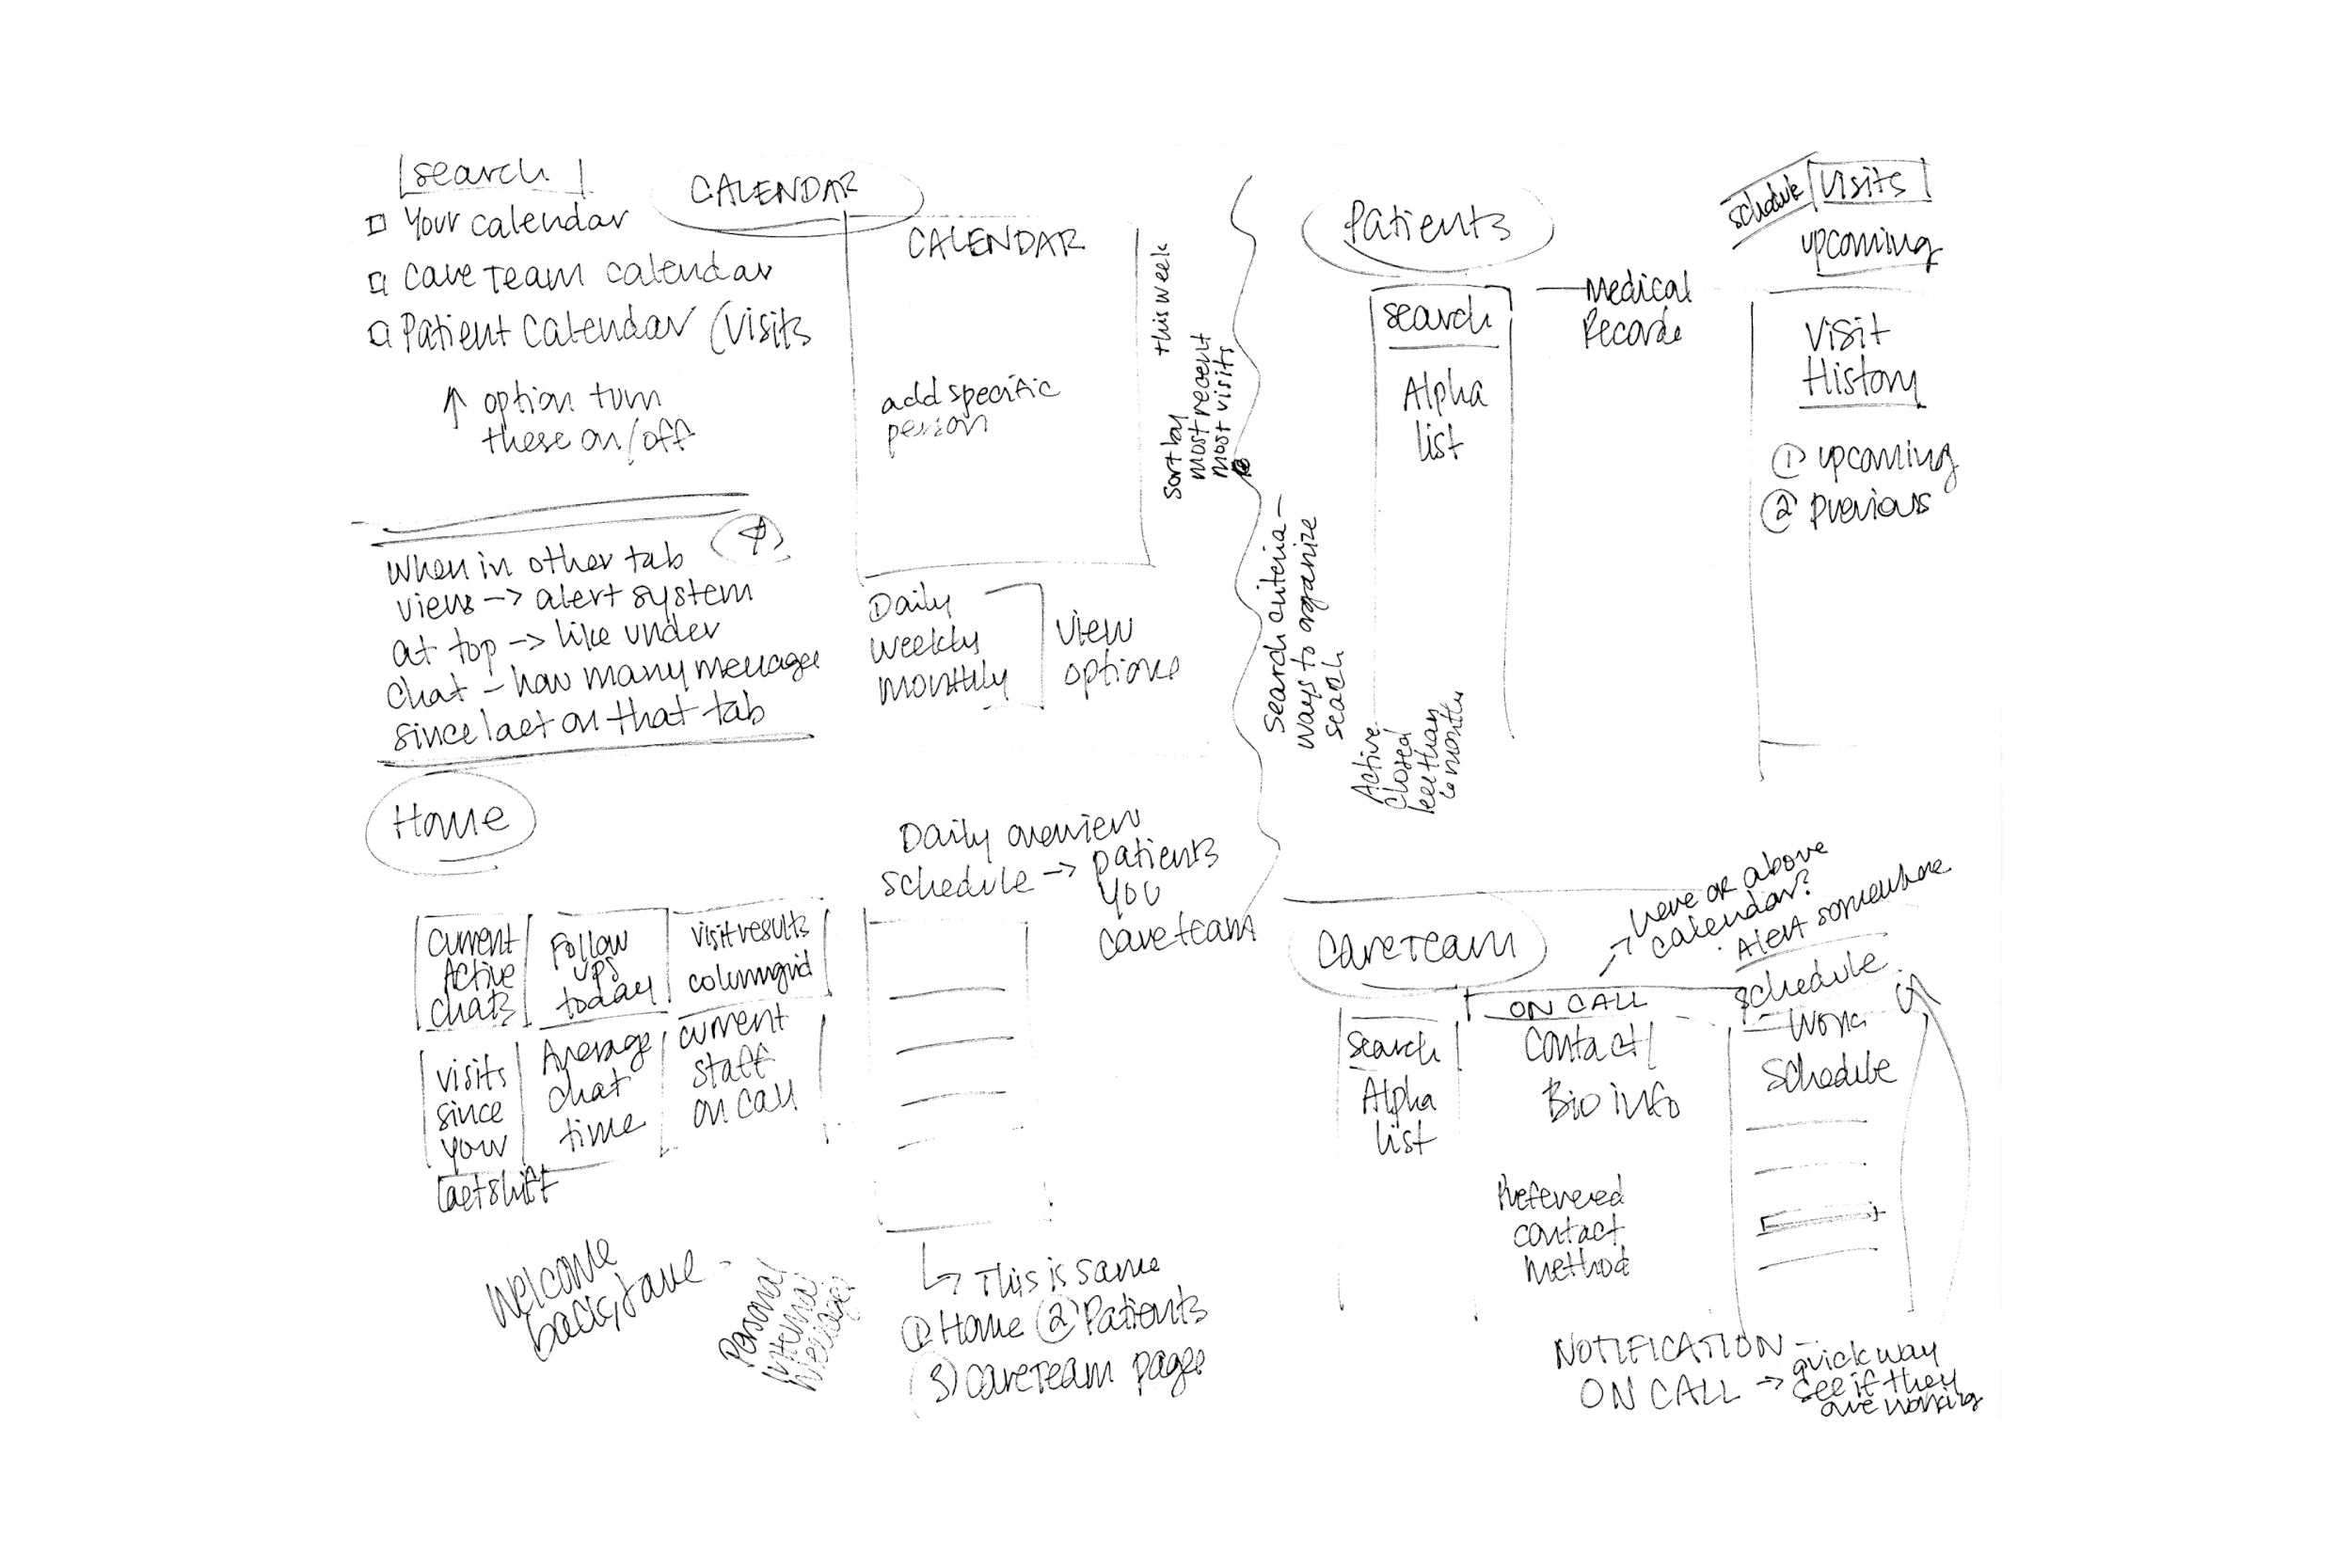 search
Your calendar
Care Team calendar
Patient Calendar (Visits
↑ option turn
these on/off
CALENDAR
CALENDAR
add specific
person
Daily
weekly
monthly
view
options
this week
Sort by
most recent
most visits
When in other tab
views -> alert system
at top -> like under
chat - how many messages
since last on that tab
Home
current
Active
chats
Follow
ups
today
visit results
visits
since
your
last shift
Average
chat
time
current
staff
on call
Welcome
back, Jane
Personal
Internal
Daily overview
schedule -> patients
you
careteam
↳ This is same
① Home ② Patients
③ careTeam pages
Patients
search
Alpha
list
Medical
Records
schedule
Visits
upcoming
Visit
History
① upcoming
② previous
Search criteria -
ways to organize
search
Active
closed
less than
6 months
CareTeam
search
Alpha
list
ON CALL
Contact/
Bio info
Preferered
contact
method
-> here or above
calendar?
Alert somewhere
schedule
- Work
schedule
NOTIFICATION -
ON CALL ->
quick way
see if they
are working